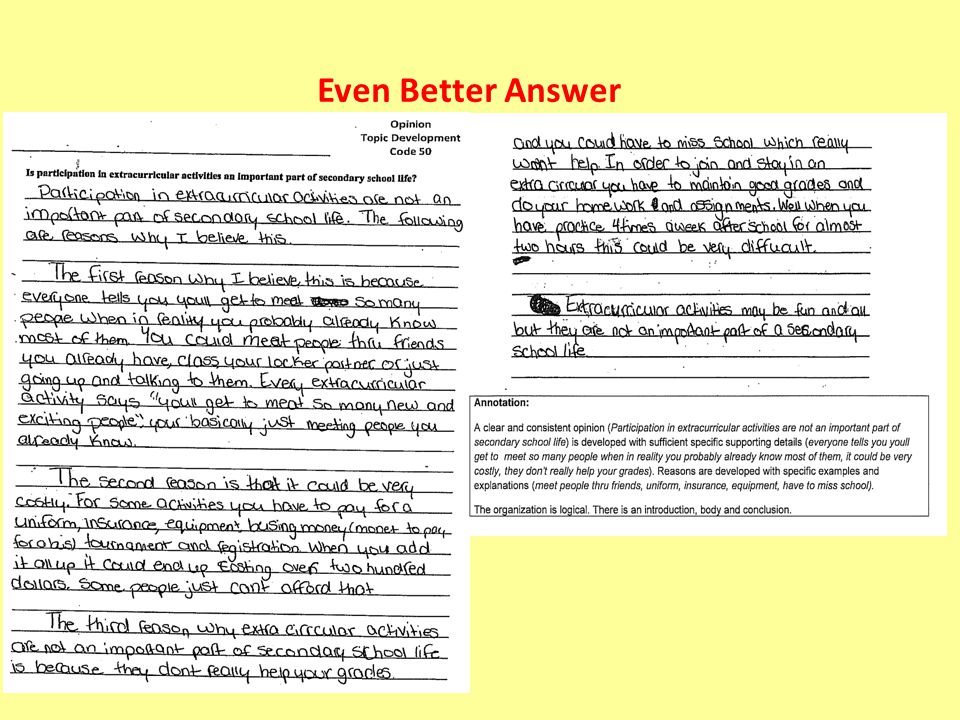 Even Better Answer
Opinion
Topic Development
Code 50
Is participation in extracurricular activities an important part of secondary school life?
Participation in extracurricular activities are not an
important part of secondary school life. The following
are reasons why I believe this.
The first reason why I believe this is because
everyone tells you youll get to meat so many
people when in reality you probably already know
most of them. You could meat people thru friends
you already have, class, your locker partner or just
going up and talking to them. Every extracurricular
activity says "youll get to meat so many new and
exciting people" your basically just meeting people you
already know.
The second reason is that it could be very
costly. For some activities you have to pay for a
uniform, insurance, equipment, busing money (monet to pay
for a bis) tournament and registration. When you add
it all up it could end up costing over two hundred
dollars. Some people just cant afford that.
The third reason why extra cirrcular activities
are not an important part of secondary school life
is because they dont really help your grades.
and you could have to miss school which really
wont help. In order to join and stay in an
extra circular you have to maintain good grades and
do your home work and assignments. Well when you
have practice 4times aweek after school for almost
two hours this could be very difficult.
Extracurricular activities may be fun and all
but they are not an important part of a secondary
school life.
Annotation:
A clear and consistent opinion (Participation in extracurricular activities are not an important part of
secondary school life) is developed with sufficient specific supporting details (everyone tells you youll
get to meet so many people when in reality you probably already know most of them, it could be very
costly, they don't really help your grades). Reasons are developed with specific examples and
explanations (meet people thru friends, uniform, insurance, equipment, have to miss school).
The organization is logical. There is an introduction, body and conclusion.